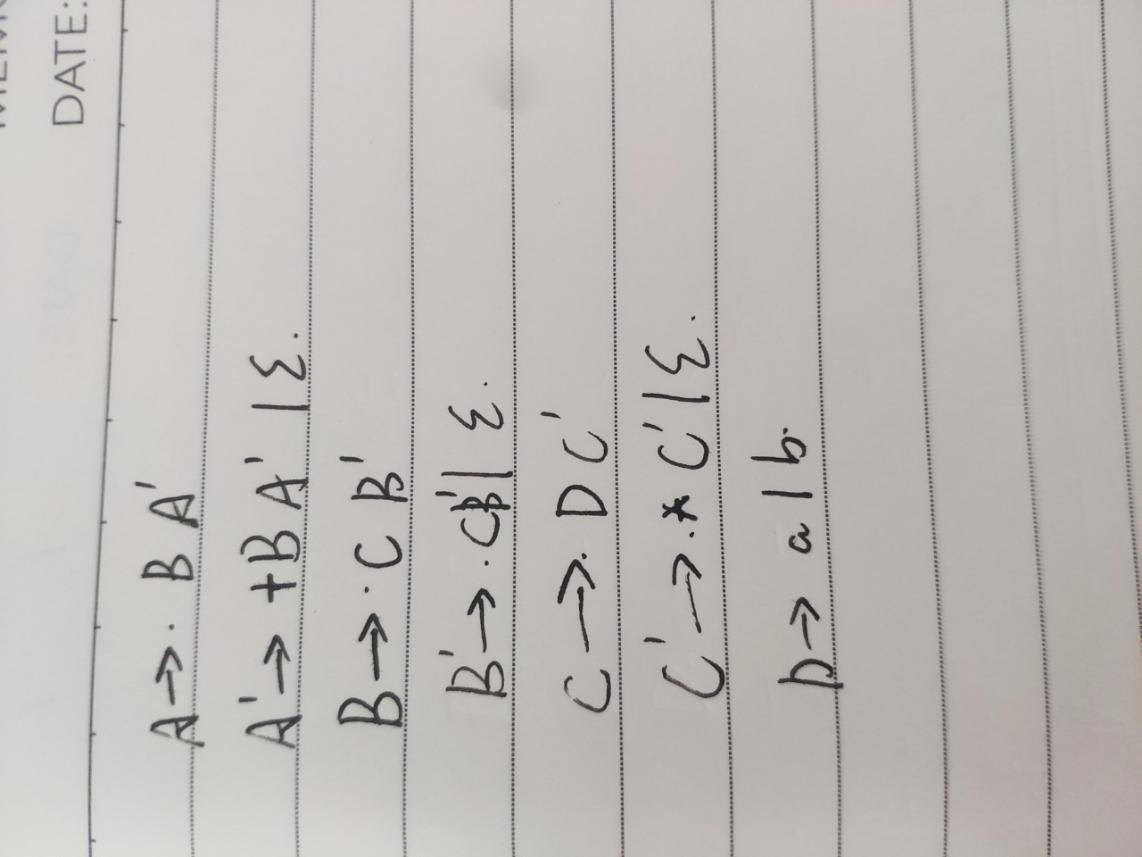 DATE:
A→. B A'
A'→ +B A' | ε.
B→. C B'
B'→ .CB' | ε.
C→. D C'
C'→ .* C' | ε.
D→ a | b.